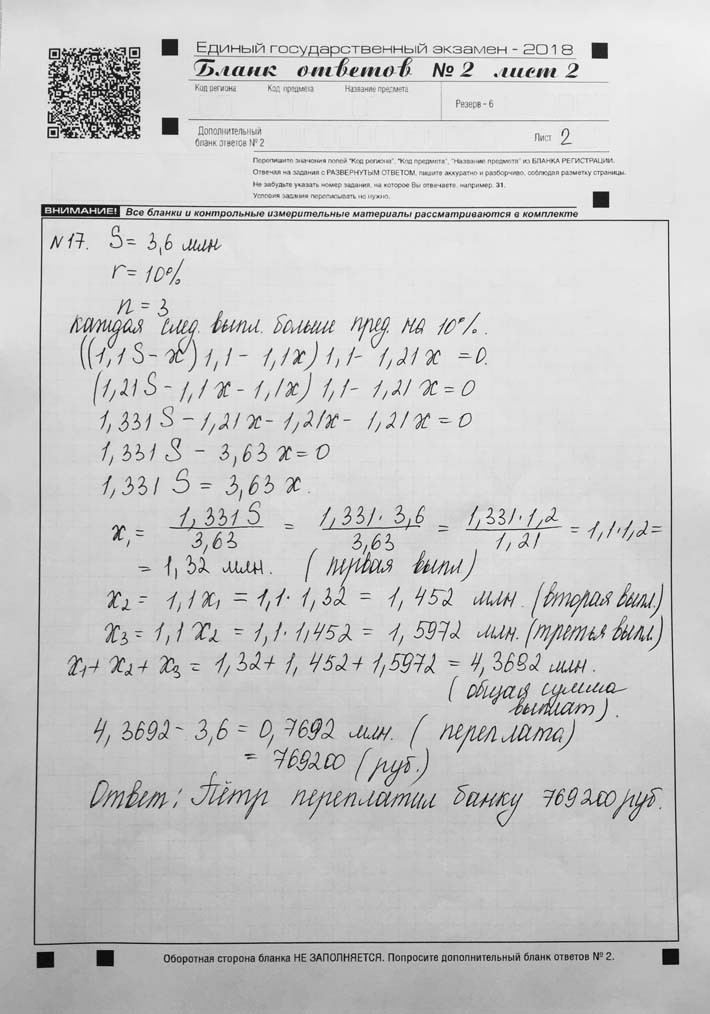 Единый государственный экзамен - 2018
Бланк ответов № 2 лист 2
Код региона Код предмета Название предмета
Резерв - 6
Дополнительный
бланк ответов № 2
Лист 2
Перепишите значения полей "Код региона", "Код предмета", "Название предмета" из БЛАНКА РЕГИСТРАЦИИ.
Отвечая на задания с РАЗВЕРНУТЫМ ОТВЕТОМ, пишите аккуратно и разборчиво, соблюдая разметку страницы.
Не забудьте указать номер задания, на которое Вы отвечаете, например, 31.
Условия задания переписывать не нужно.
ВНИМАНИЕ! Все бланки и контрольные измерительные материалы рассматриваются в комплекте
N 17. S = 3,6 млн
r = 10%
n = 3
каждая след. выпл. больше пред. на 10%.
((1,1 S - x) 1,1 - 1,1x) 1,1 - 1,21x = 0.
(1,21 S - 1,1 x - 1,1x) 1,1 - 1,21 x = 0
1,331 S - 1,21 x - 1,21x - 1,21 x = 0
1,331 S - 3,63 x = 0
1,331 S = 3,63 x.
x₁ = 1,331 S / 3,63 = 1,331 · 3,6 / 3,63 = 1,331 · 1,2 / 1,21 = 1,1 · 1,2 =
= 1,32 млн. (первая выпл)
x₂ = 1,1 x₁ = 1,1 · 1,32 = 1,452 млн. (вторая выпл.)
x₃ = 1,1 x₂ = 1,1 · 1,452 = 1,5972 млн. (третья выпл)
x₁ + x₂ + x₃ = 1,32 + 1,452 + 1,5972 = 4,3692 млн.
(общая сумма
выплат).
4,3692 - 3,6 = 0,7692 млн. (переплата)
= 769200 (руб.)
Ответ: Пётр переплатил банку 769200 руб.
Оборотная сторона бланка НЕ ЗАПОЛНЯЕТСЯ. Попросите дополнительный бланк ответов № 2.